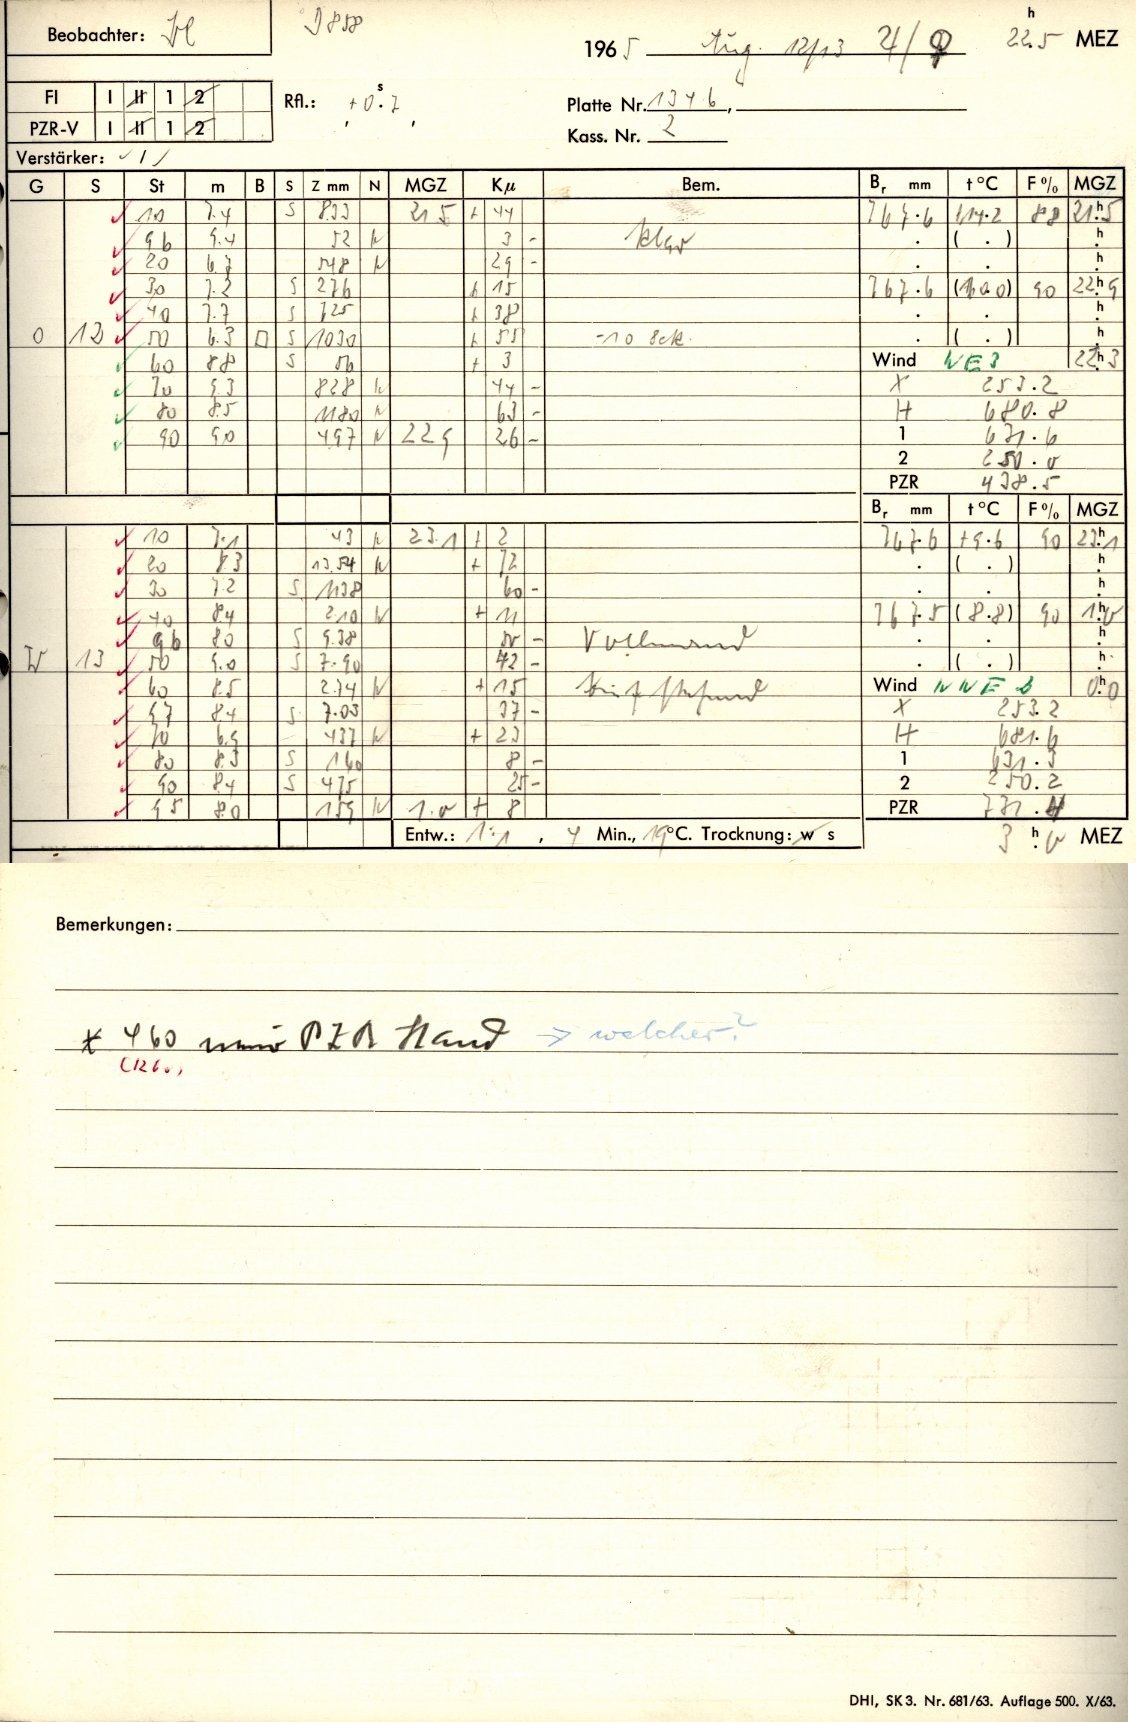 Beobachter:
J 858
1965 Aug. 12/13 ♃/♀ 22h.5 MEZ
FI I II 1 2
Rfl.: +0s.7
Platte Nr. 1346,
PZR-V I II 1 2
Kass. Nr. 2
Verstärker: 1
G S St m B S Z mm N MGZ Kμ Bem. Br mm t°C F% MGZ
10 7.4 S 833 21 5 + 44 767.6 14.2 88 21h.5
96 9.4 52 N 3 - klar . ( . ) h
20 6.7 548 N 29 - . . h
30 7.2 S 276 + 15 767.6 (10.0) 90 22h9
40 7.7 S 725 + 38 . . h
O 12 50 6.3 □ S 1030 + 55 -10 sek. . ( . ) h
60 8.8 S 56 + 3 Wind NE 3 22h3
70 9.3 828 N 44 - X 253.2
80 8.5 1180 N 63 - H 680.8
90 9.0 497 N 22 9 26 - 1 631.6
2 250.0
PZR 438.5
Br mm t°C F% MGZ
10 7.1 43 N 23.1 + 2 767.6 +9.6 90 23h.1
20 8.3 13.54 N + 72 . ( . ) h
30 7.2 S 1138 60 - . . h
40 8.4 210 N + 11 767.5 (8.8) 90 1h.0
96 8.0 S 9.38 50 - Vollmond . . h
W 13 50 9.0 S 7.90 42 - . ( . ) h
60 8.5 2.74 N + 15 Wind NNE 0h.0
97 8.4 S 7.03 37 - X 253.2
70 6.9 437 N + 23 H 681.6
80 8.3 S 160 8 - 1 631.3
90 8.4 S 475 25 - 2 250.2
95 8.0 159 N 1.0 + 8 PZR 771.4
Entw.: 1:1, 4 Min., 19°C. Trocknung: w s 3h.0 MEZ
Bemerkungen:
* 460 PZR Stand → welcher?
DHI, SK 3. Nr. 681/63. Auflage 500. X/63.